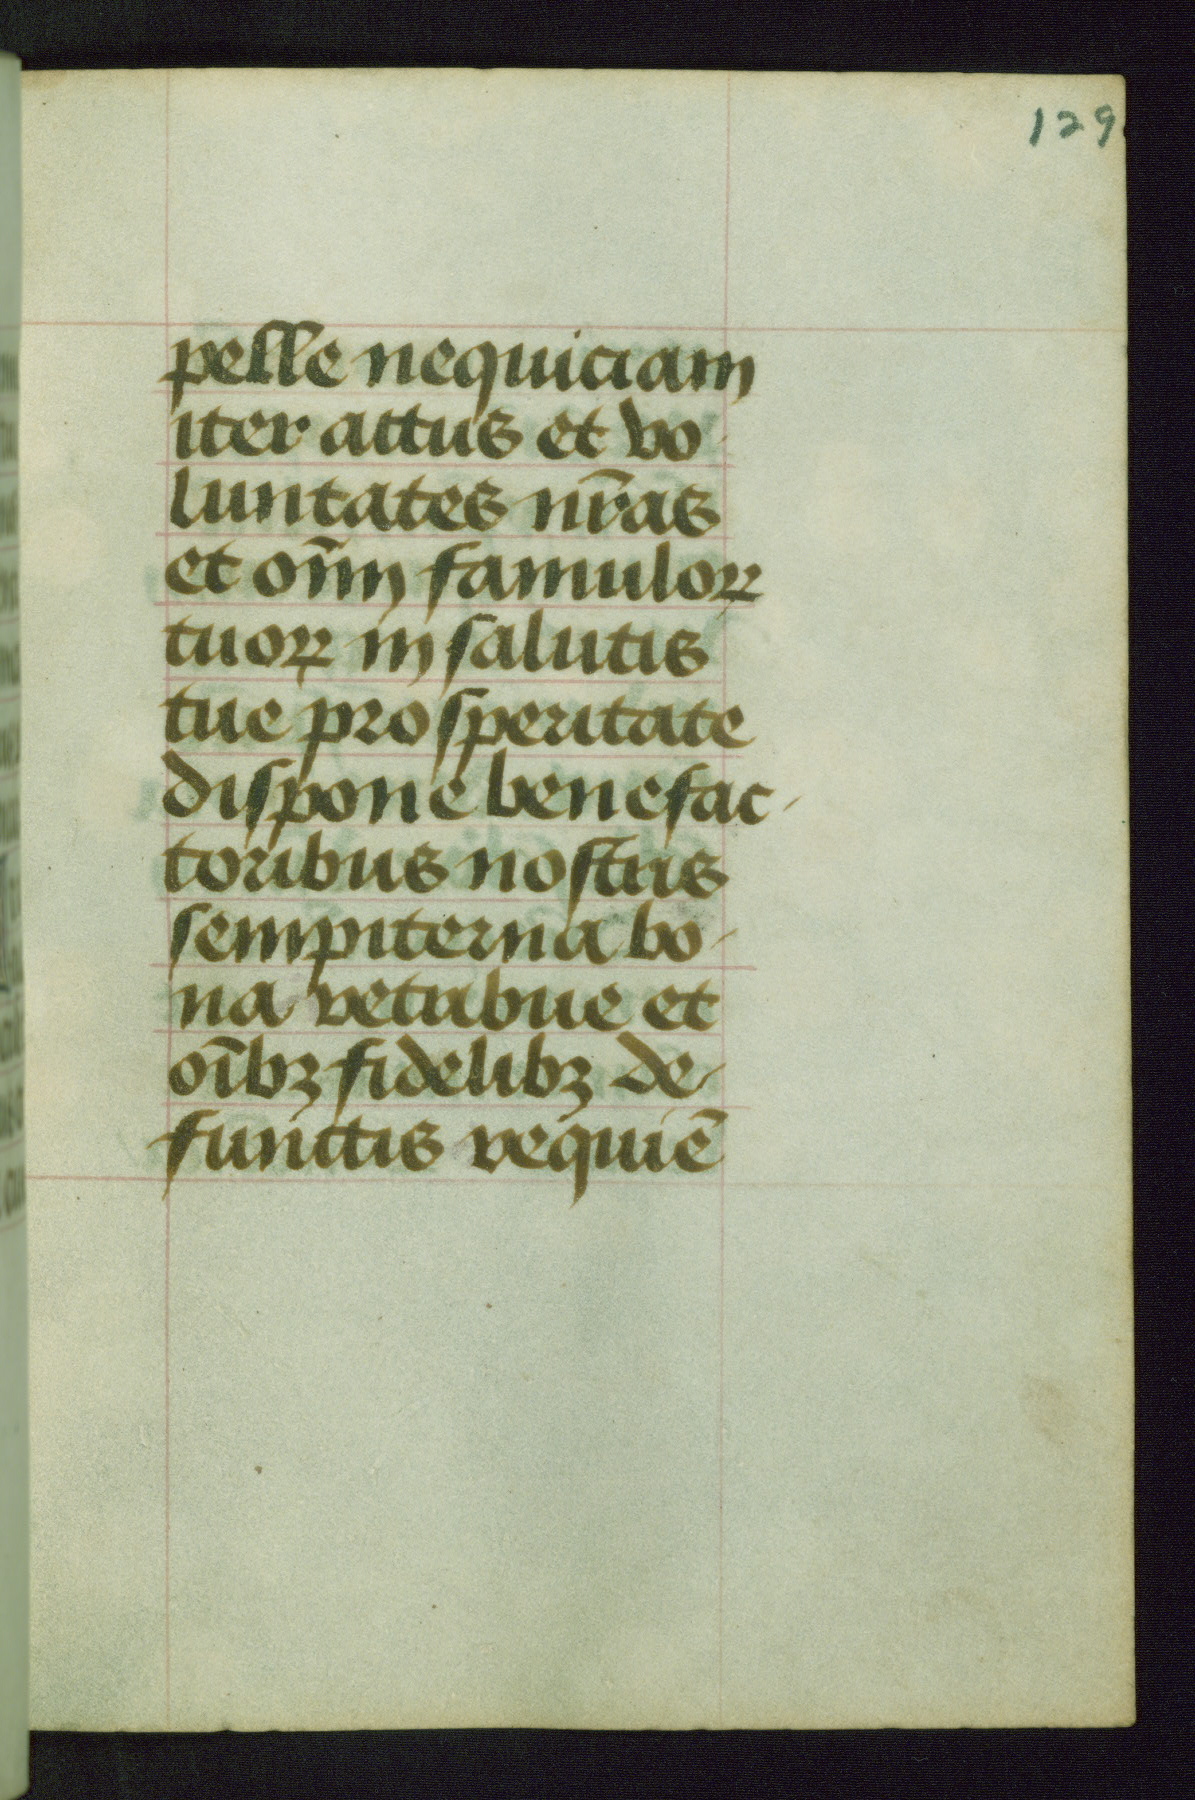 129
pelle nequiciam
iter actus et vo-
luntates nr̄as
et om̄n famuloꝝ
tuoꝝ in salutis
tue prosperitate
dispone benefac-
toribus nostris
sempiterna bo-
na retribue et
oībꝫ fidelibꝫ de-
functis requiē